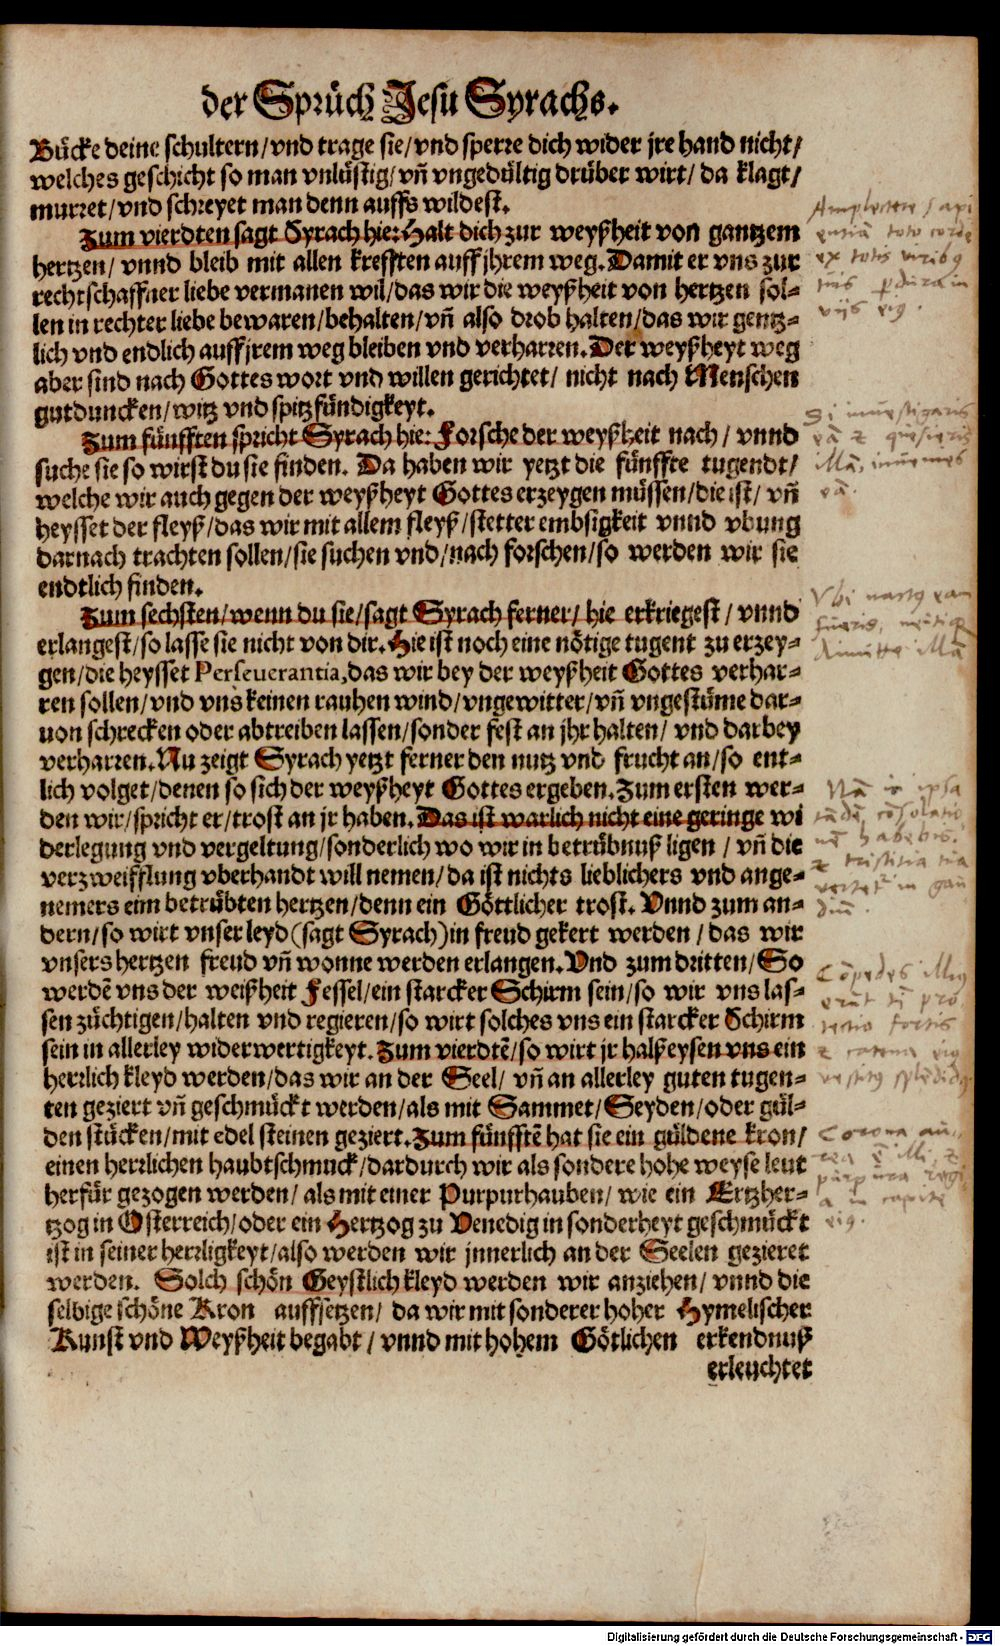 der Sprüch Jesu Syrachs.
Bücke deine schultern/vnd trage sie/vnd sperre dich wider jre hand nicht/
welches geschicht so man vnlüstig/vñ vngedültig drüber wirt/ da klagt/
murret/vnd schreyet man denn auffs wildest.
Zum vierdten sagt Syrach hie: Halt dich zur weyßheit von gantzem
hertzen/ vnnd bleib mit allen krefften auff jhrem weg. Damit er vns zur
rechtschaffner liebe vermanen wil/das wir die weyßheit von hertzen sol-
len in rechter liebe bewaren/behalten/vñ also drob halten/das wir gentz-
lich vnd endlich auff jrem weg bleiben vnd verharren. Der weyßheyt weg
aber sind nach Gottes wort vnd willen gerichtet/ nicht nach Menschen
gutduncken/witz vnd spitzfündigkeyt.
Zum fünfften spricht Syrach hie: Forsche der weyßheit nach/ vnnd
suche sie so wirst du sie finden. Da haben wir yetzt die fünffte tugendt/
welche wir auch gegen der weyßheyt Gottes erzeygen müssen/die ist/ vñ
heysset der fleyß/das wir mit allem fleyß/stetter embsigkeit vnnd vbung
darnach trachten sollen/sie suchen vnd/nach forschen/so werden wir sie
endtlich finden.
Zum sechsten/wenn du sie/sagt Syrach ferner/ hie erkriegest/ vnnd
erlangest/so lasse sie nicht von dir. Hie ist noch eine nötige tugent zu erzey-
gen/die heysset Perseuerantia,das wir bey der weyßheit Gottes verhar-
ren sollen/vnd vns keinen rauhen wind/vngewitter/vñ vngestüme dar-
uon schrecken oder abtreiben lassen/sonder fest an jhr halten/ vnd darbey
verharren. Nu zeigt Syrach yetzt ferner den nutz vnd frucht an/so ent-
lich volget/denen so sich der weyßheyt Gottes ergeben. Zum ersten wer-
den wir/spricht er/trost an jr haben. Das ist warlich nicht eine geringe wi
derlegung vnd vergeltung/sonderlich wo wir in betrübnuß ligen/ vñ die
verzweifflung vberhandt will nemen/da ist nichts lieblichers vnd ange-
nemers eim betrübten hertzen/denn ein Göttlicher trost. Vnnd zum an-
dern/so wirt vnser leyd(sagt Syrach)in freud gekert werden/das wir
vnsers hertzen freud vñ wonne werden erlangen. Vnd zum dritten/So
werdē vns der weißheit Fessel/ein starcker Schirm sein/so wir vns las-
sen züchtigen/halten vnd regieren/so wirt solches vns ein starcker Schirm
sein in allerley widerwertigkeyt. Zum vierdtē/so wirt jr halßeysen vns ein
herrlich kleyd werden/das wir an der Seel/ vñ an allerley guten tugen-
ten geziert vñ geschmückt werden/als mit Sammet/Seyden/oder gül-
den stücken/mit edel steinen geziert. Zum fünfftē hat sie ein güldene kron/
einen herrlichen haubtschmuck/dardurch wir als sondere hohe weyse leut
herfür gezogen werden/ als mit einer Purpurhauben/ wie ein Ertzher-
tzog in Osterreich/oder ein Hertzog zu Venedig in sonderheyt geschmückt
ist in seiner herrligkeyt/also werden wir jnnerlich an der Seelen gezieret
werden. Solch schön Geystlich kleyd werden wir anziehen/ vnnd die
selbige schöne Kron auffsetzen/ da wir mit sonderer hoher Hymelischer
Kunst vnd Weyßheit begabt/ vnnd mit hohem Götlichen erkendnuß
erleuchtet
Amplectere sapi
entiã toto corde
ex totis viribus
tuis perdura in
viis eius.
Si inuestigaris
eã & quesieris
illã, inuenies
eã.
Vbi nactus eam
fueris,
dimitte illã
Nã in ipsa
tãdẽ cõsolatio
nẽ habebis.
& tristitia tua
vertetur in gau
diũ.
Cõpedes illius
erũt tibi pro
tectio fortis
& catena eius
vestitus splẽdidus
Corona au
rea illi, &
purpura regi
a in capite
eius.
Digitalisierung gefördert durch die Deutsche Forschungsgemeinschaft - DFG